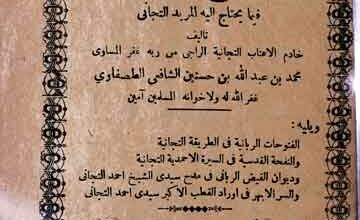 فيما يحتاج اليه المريد التجانى
تاليف
خادم الاعتاب التجانية الراجى من ربه غفر المساوى
محمد بن عبد الله بن حسنين الشافعى الطصفاوى
غفر الله له ولاخوانه المسلمين آمين
ويليه :
الفتوحات الربانية فى الطريقة التجانية
والنفحة القدسية فى السيرة الاحمدية التجانية
وديوان الفيض الربانى فى مدح سيدى الشيخ احمد التجانى
والسر الابهر فى اوراد القطب الاكبر سيدى احمد التجانى